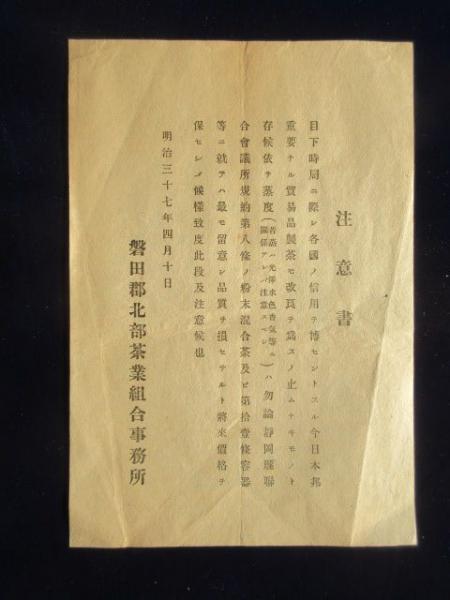 注意書
目下時局ニ際シ各國ノ信用ヲ博セントスル今日本邦
重要ナル貿易品製茶モ改良ヲ為スノ止ムナキモノト
存候依テ蒸度(若蒸ハ光澤水色香氣等ニ關係アレバ注意スベシ)ハ勿論靜岡縣聯
合會議所規約第八條ノ粉末混合茶及ビ第拾壹條容器
等ニ就テハ最モ留意シ品質ヲ損セザルト將來價格ヲ
保セシメ候樣致度此段及注意候也
明治三十七年四月十日
磐田郡北部茶業組合事務所